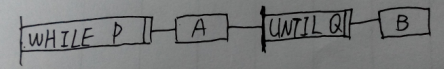 WHILE P A UNTIL Q B